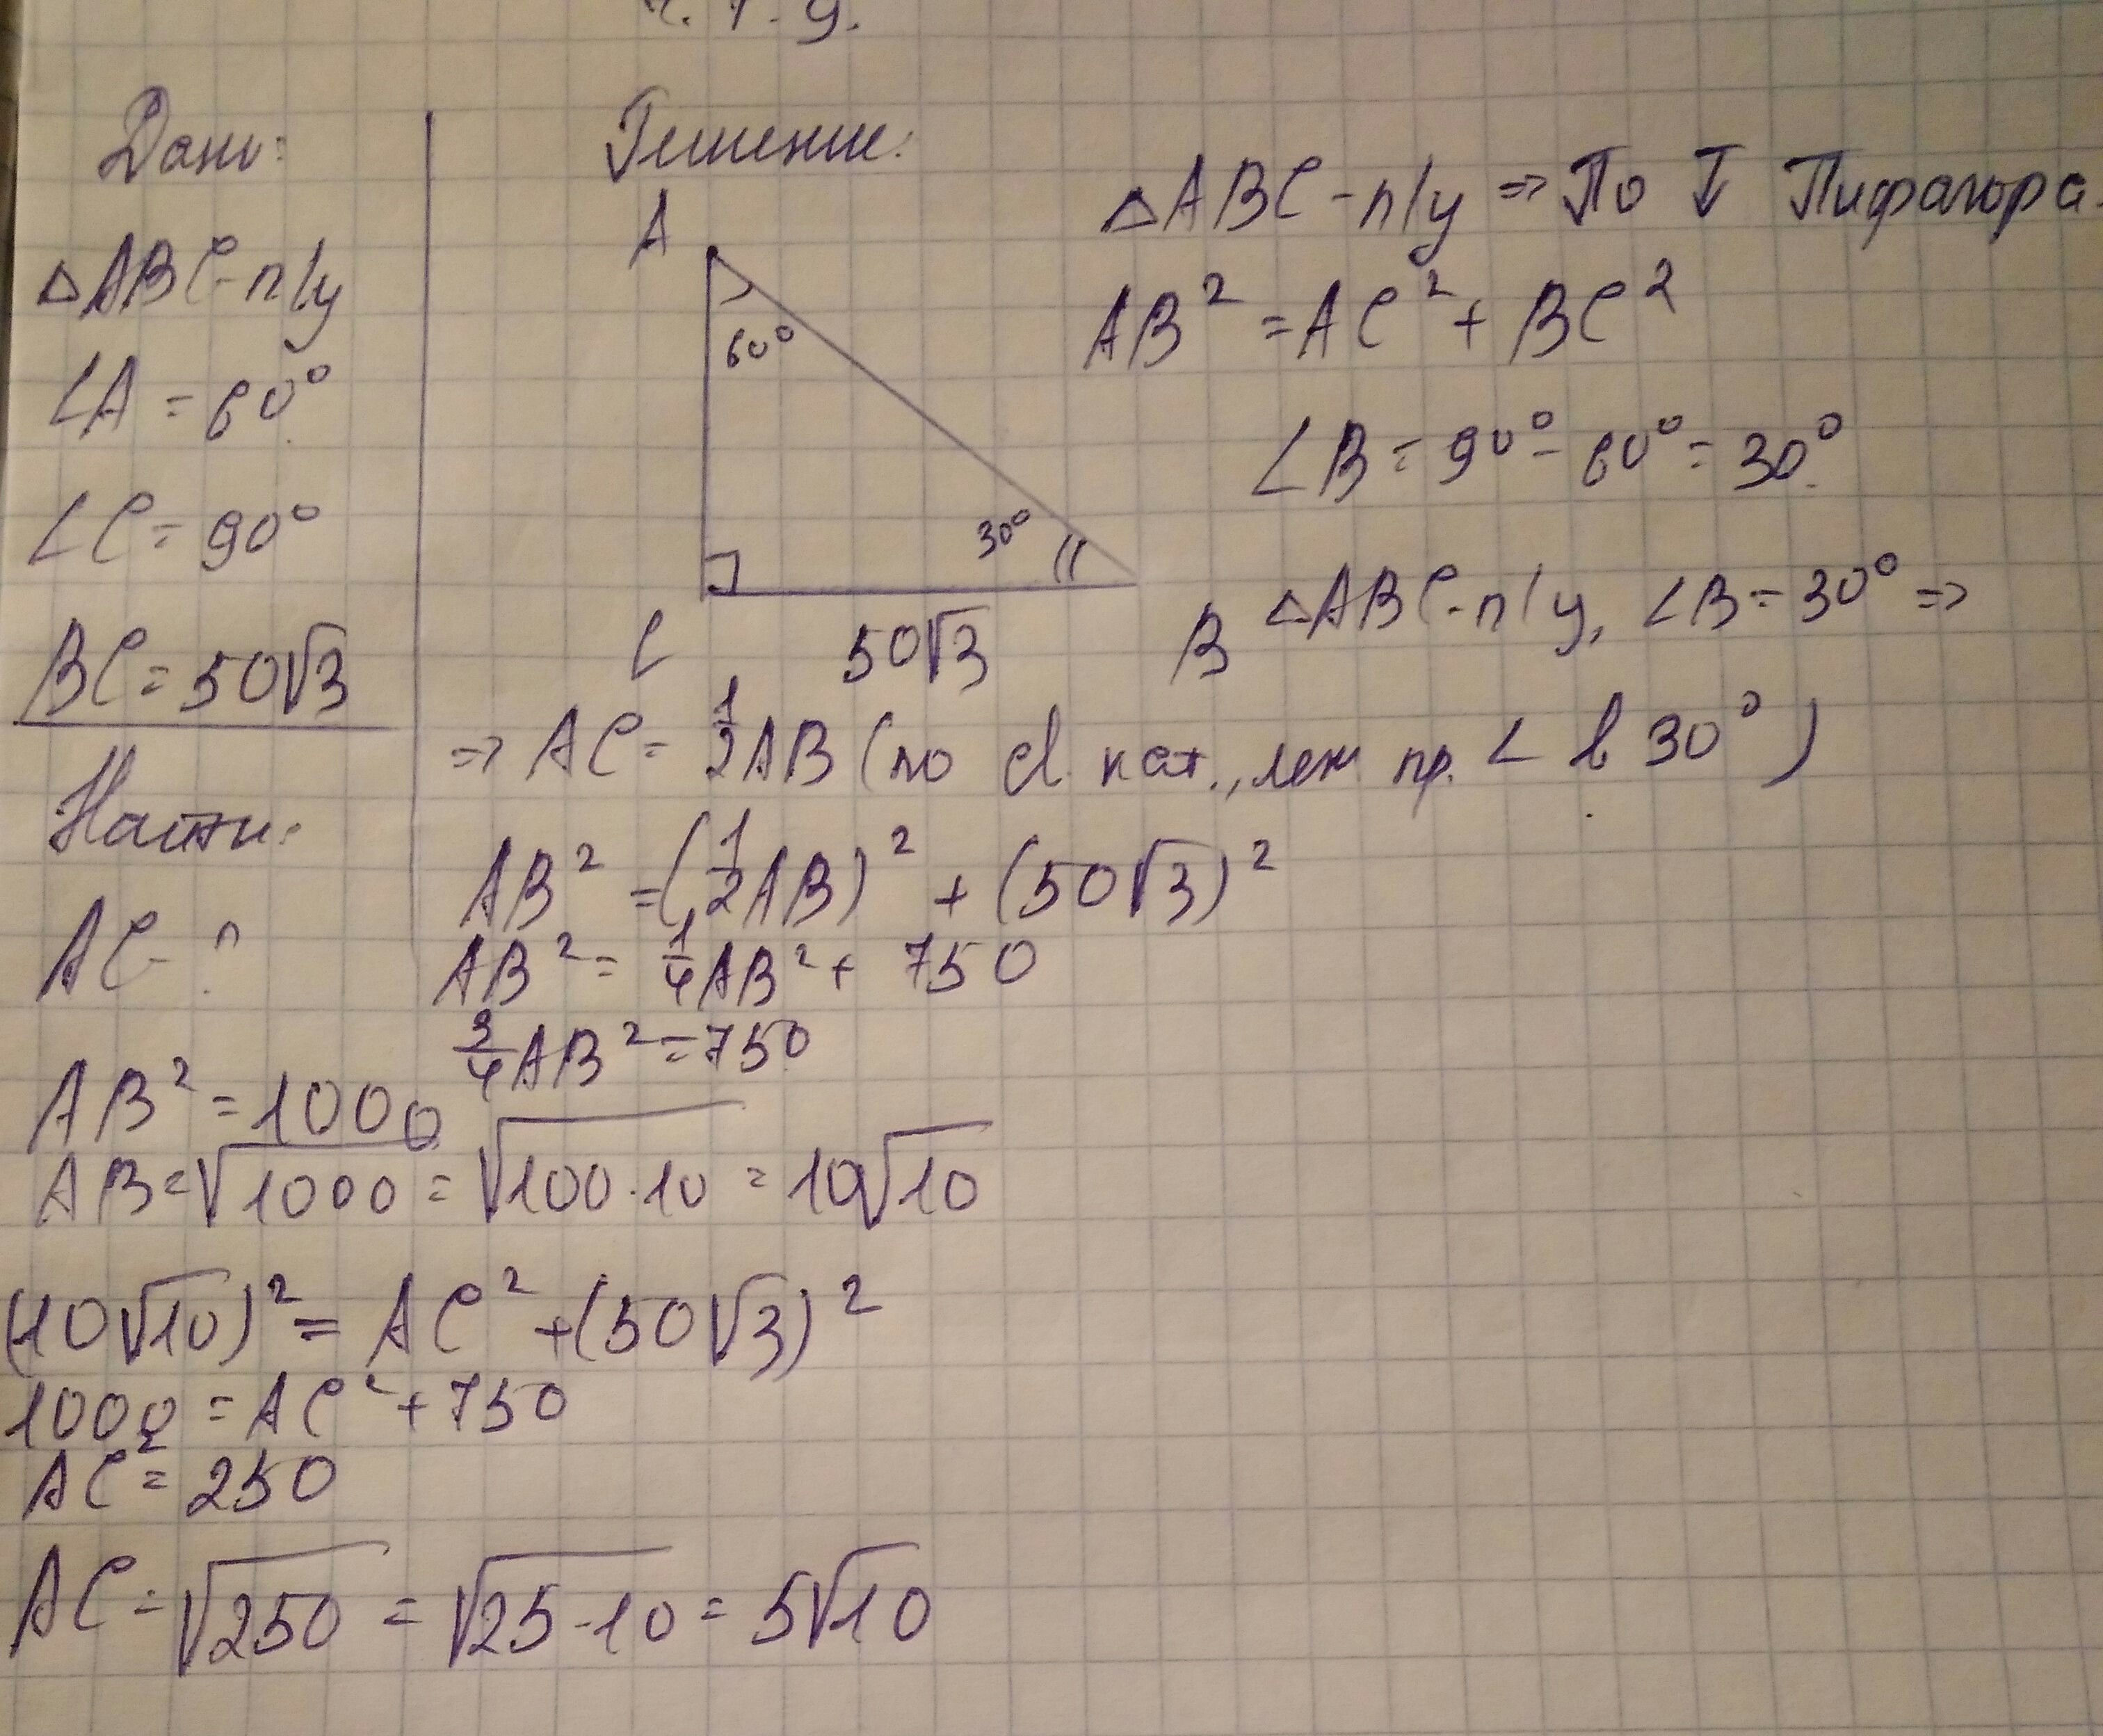 ч. т. д.
Дано:
△ABC - п/у
∠A = 60°
∠C = 90°
BC = 50√3
Найти:
AC - ?
Решение:
A
60°
30°
C
50√3
B
△ABC - п/у => По Т Пифагора.
AB² = AC² + BC²
∠B = 90° - 60° = 30°
△ABC - п/у, ∠B = 30° =>
=> AC = ½AB (по cl. кат., леж пр. ∠ в 30°)
AB² = (½AB)² + (50√3)²
AB² = ¼AB² + 750
¾AB² = 750
AB² = 1000
AB = √1000 = √100·10 = 10√10
(10√10)² = AC² + (50√3)²
1000 = AC² + 750
AC² = 250
AC = √250 = √25·10 = 5√10